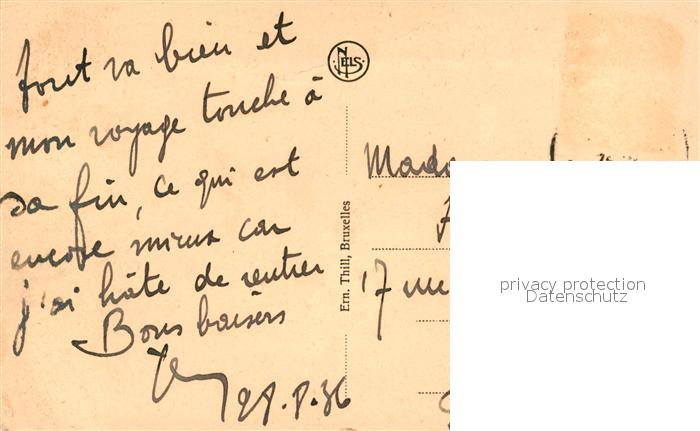 Tout va bien et
mon voyage touche à
sa fin, ce qui est
encore mieux car
j'ai hâte de rentrer
Bons baisers
NELS
Ern. Thill, Bruxelles
Mada
17 rue
privacy protection
Datenschutz